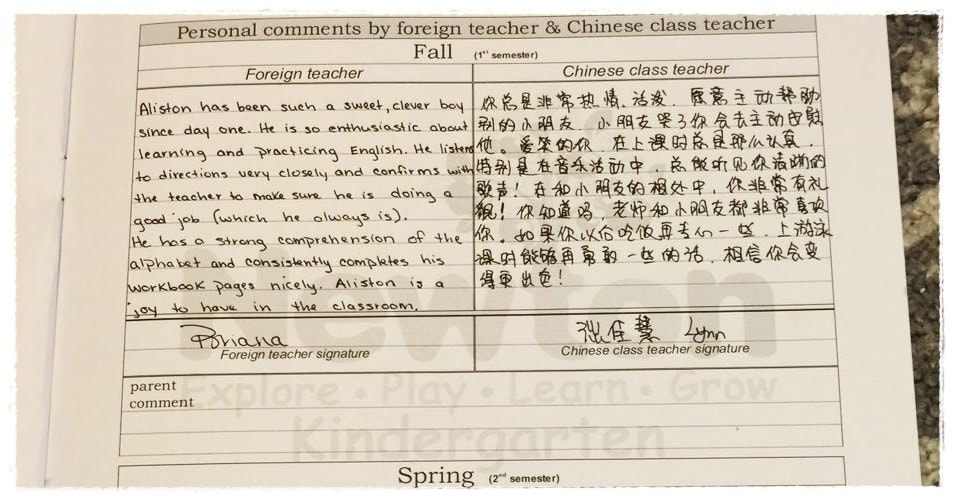 Personal comments by foreign teacher & Chinese class teacher
Fall (1st semester)
Foreign teacher
Aliston has been such a sweet, clever boy
since day one. He is so enthusiastic about
learning and practicing English. He listens
to directions very closely and confirms with
the teacher to make sure he is doing a
good job (which he always is).
He has a strong comprehension of the
alphabet and consistently completes his
workbook pages nicely. Aliston is a
joy to have in the classroom.
Briana
Foreign teacher signature
Chinese class teacher
你总是非常热情、活泼、愿意主动帮助
别的小朋友，小朋友哭了你会去主动安慰
他。爱笑的你，在上课时总是那么认真，
特别是在音乐活动中，总能听见你清晰的
歌声！在和小朋友的相处中，你非常有礼
貌！你知道吗，老师和小朋友都非常喜欢
你。如果你以后吃饭再专心一些，上游泳
课时能够再勇敢一些的话，相信你会变
得更出色！
Lynn
Chinese class teacher signature
parent
comment
Newton
Explore • Play • Learn • Grow
Kindergarten
Spring (2nd semester)